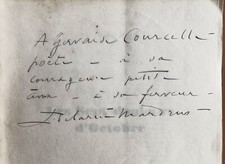 A Gervaise Courcelle
poète - à sa
courageuse petite
âme - à sa ferveur -
L. Delarue-Mardrus
d'Octobre